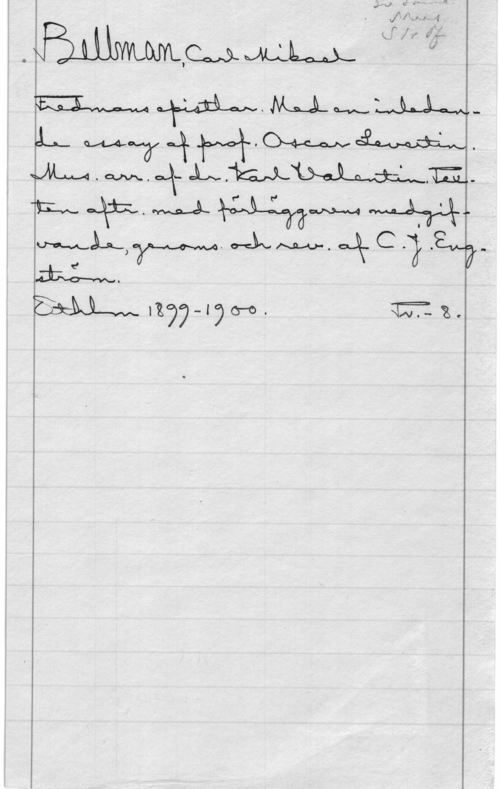 Bellman, Carl Mikael
Fredmans epistlar. Med en inledan-
de essay af prof. Oscar Levertin.
Mus. arr. af dr. Karl Valentin. Tex-
ten aftr. med förläggarens medgif-
vande, genoms. och rev. af C. J. Eng-
ström.
Sthlm 1899-1900. Tv.- 8.